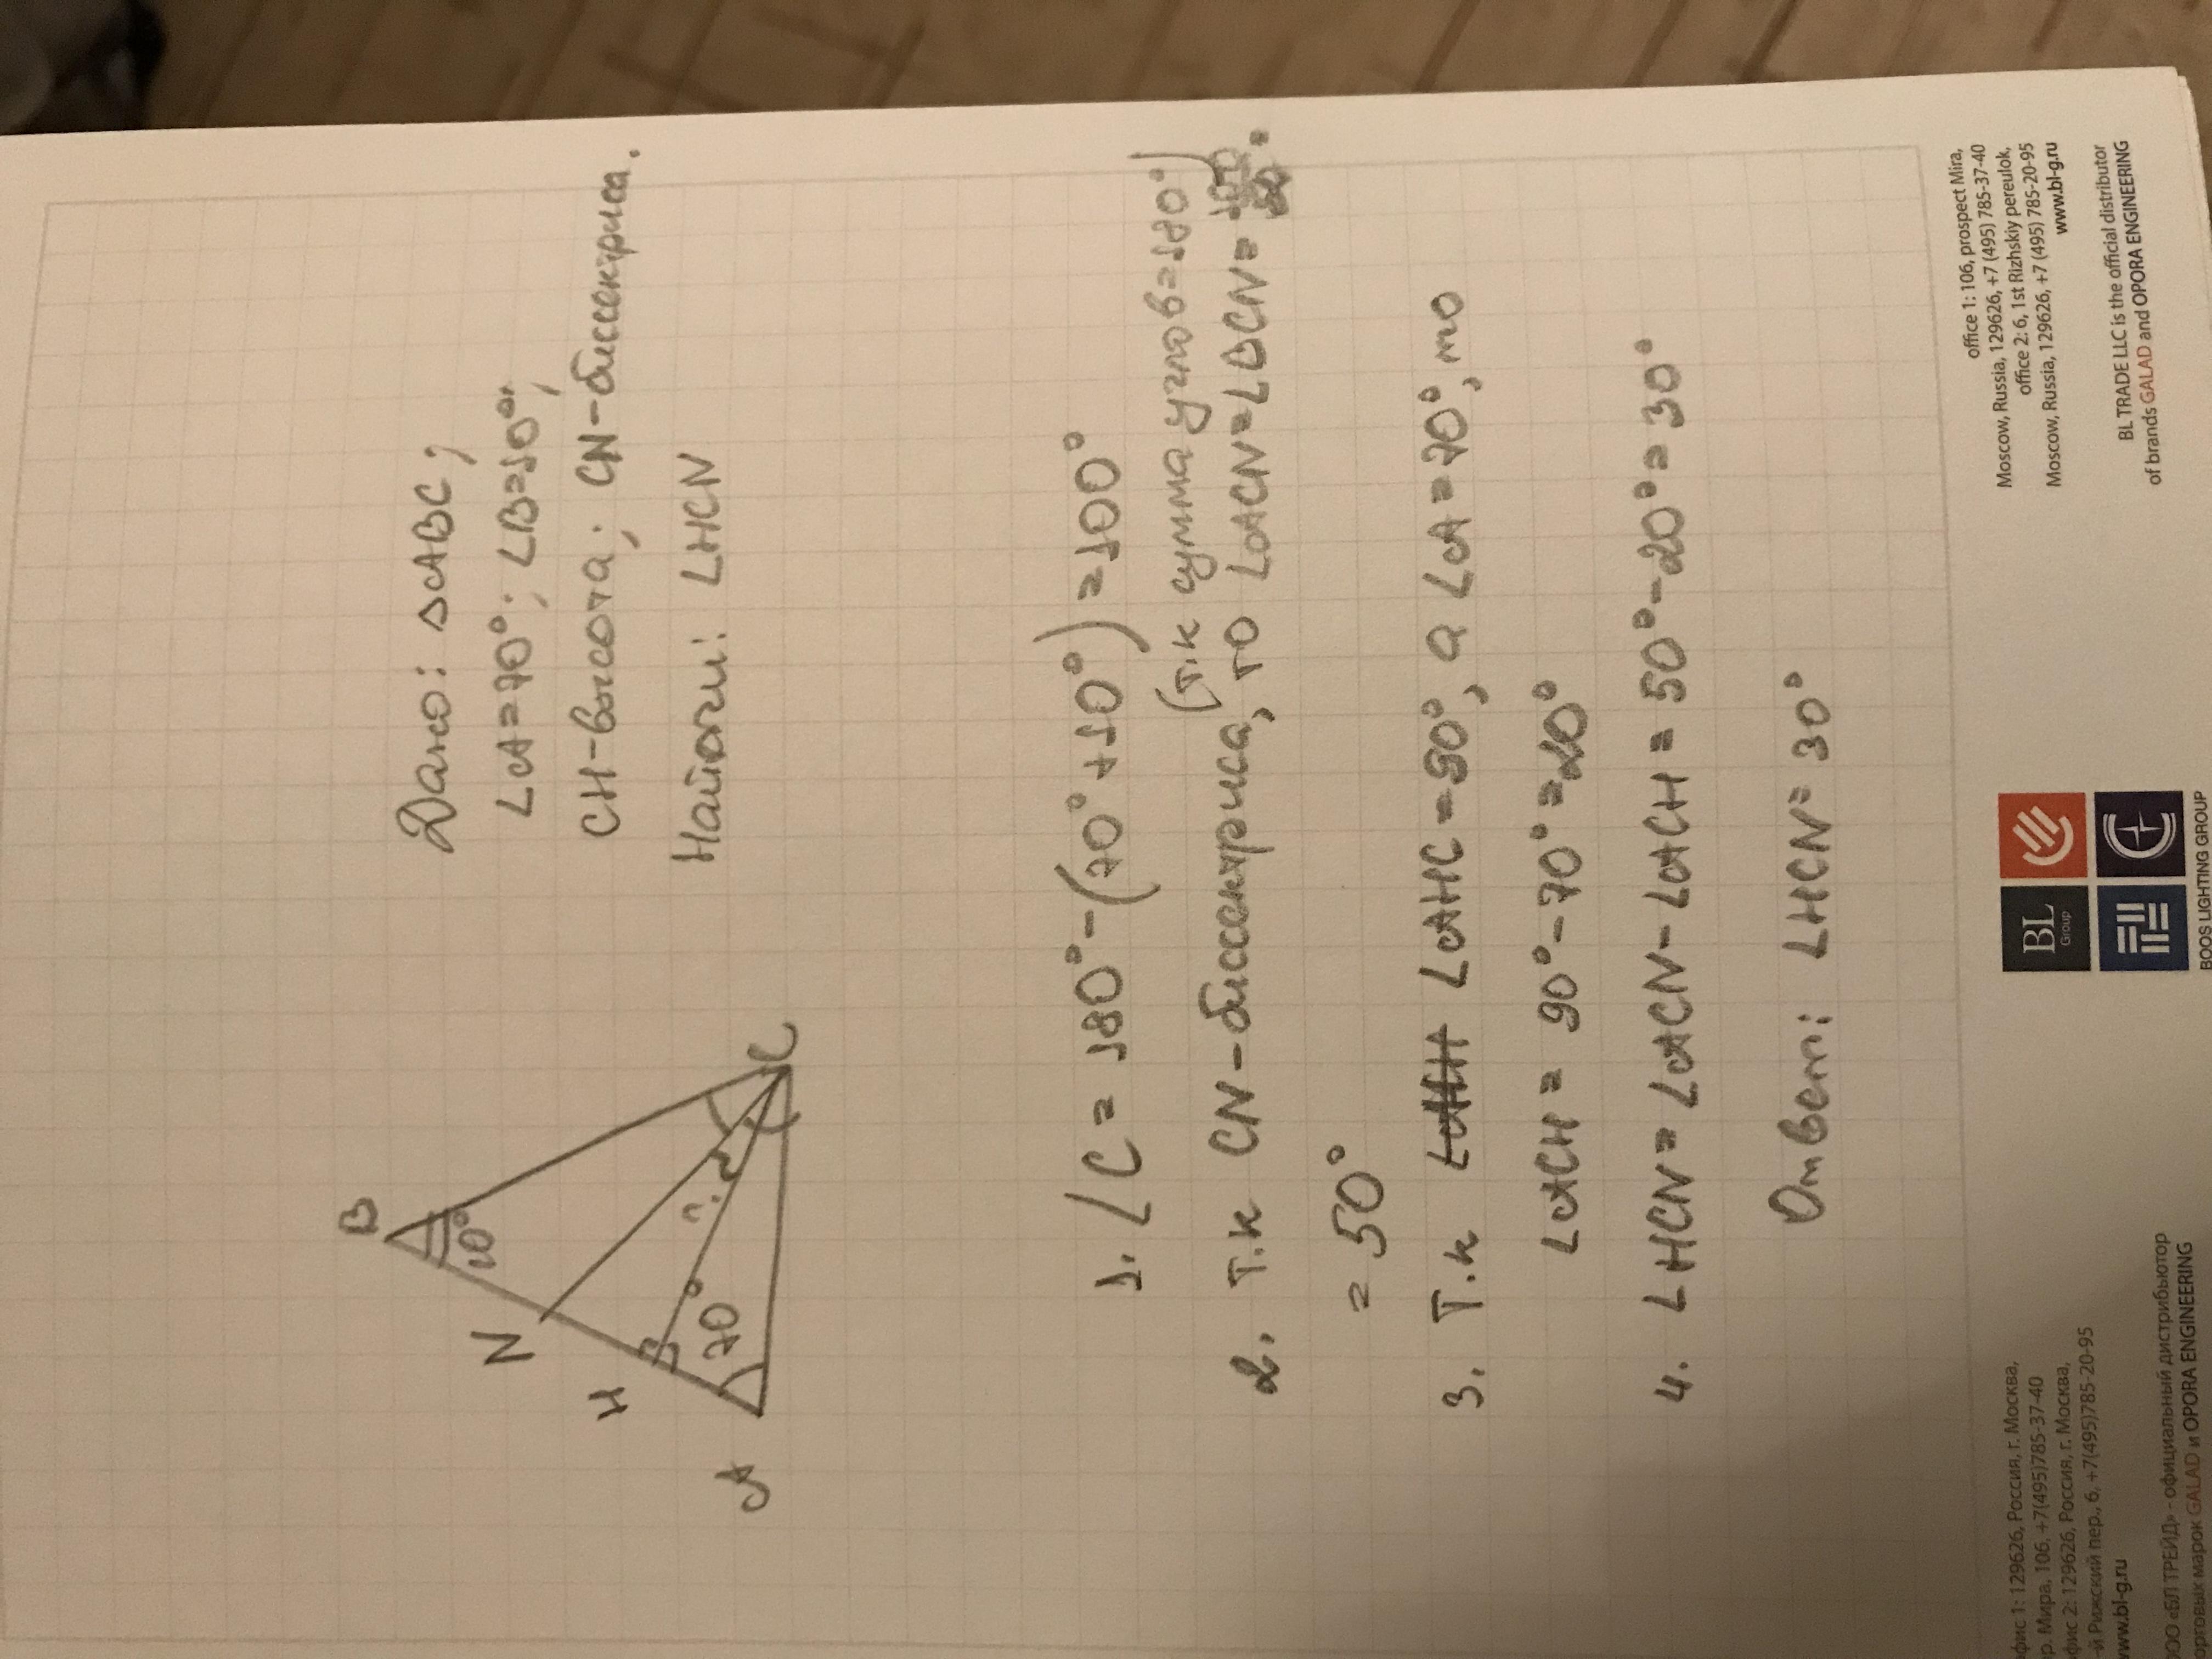 Дано: △ABC;
∠A=70°; ∠B=10°;
CH-высота; CN-биссектриса.
Найти: ∠HCN
B
10°
N
H
?
70°
A
C
1. ∠C = 180°-(70°+10°)=100°
(т.к сумма углов=180°)
2. Т.к CN-биссектриса, то ∠ACN=∠BCN=
= 50°
3. Т.к ∠AHC=90°, а ∠A=70°, то
∠ACH = 90°-70°=20°
4. ∠HCN= ∠ACN-∠ACH = 50°-20°=30°
Ответ: ∠HCN=30°
фис 1: 129626, Россия, г. Москва,
р. Мира, 106, +7(495)785-37-40
фис 2: 129626, Россия, г. Москва,
-й Рижский пер., 6, +7(495)785-20-95
www.bl-g.ru
ООО «БЛ ТРЕЙД» - официальный дистрибьютор
орговых марок GALAD и OPORA ENGINEERING
BL
Group
BOOS LIGHTING GROUP
office 1: 106, prospect Mira,
Moscow, Russia, 129626, +7 (495) 785-37-40
office 2: 6, 1st Rizhskiy pereulok,
Moscow, Russia, 129626, +7 (495) 785-20-95
www.bl-g.ru
BL TRADE LLC is the official distributor
of brands GALAD and OPORA ENGINEERING